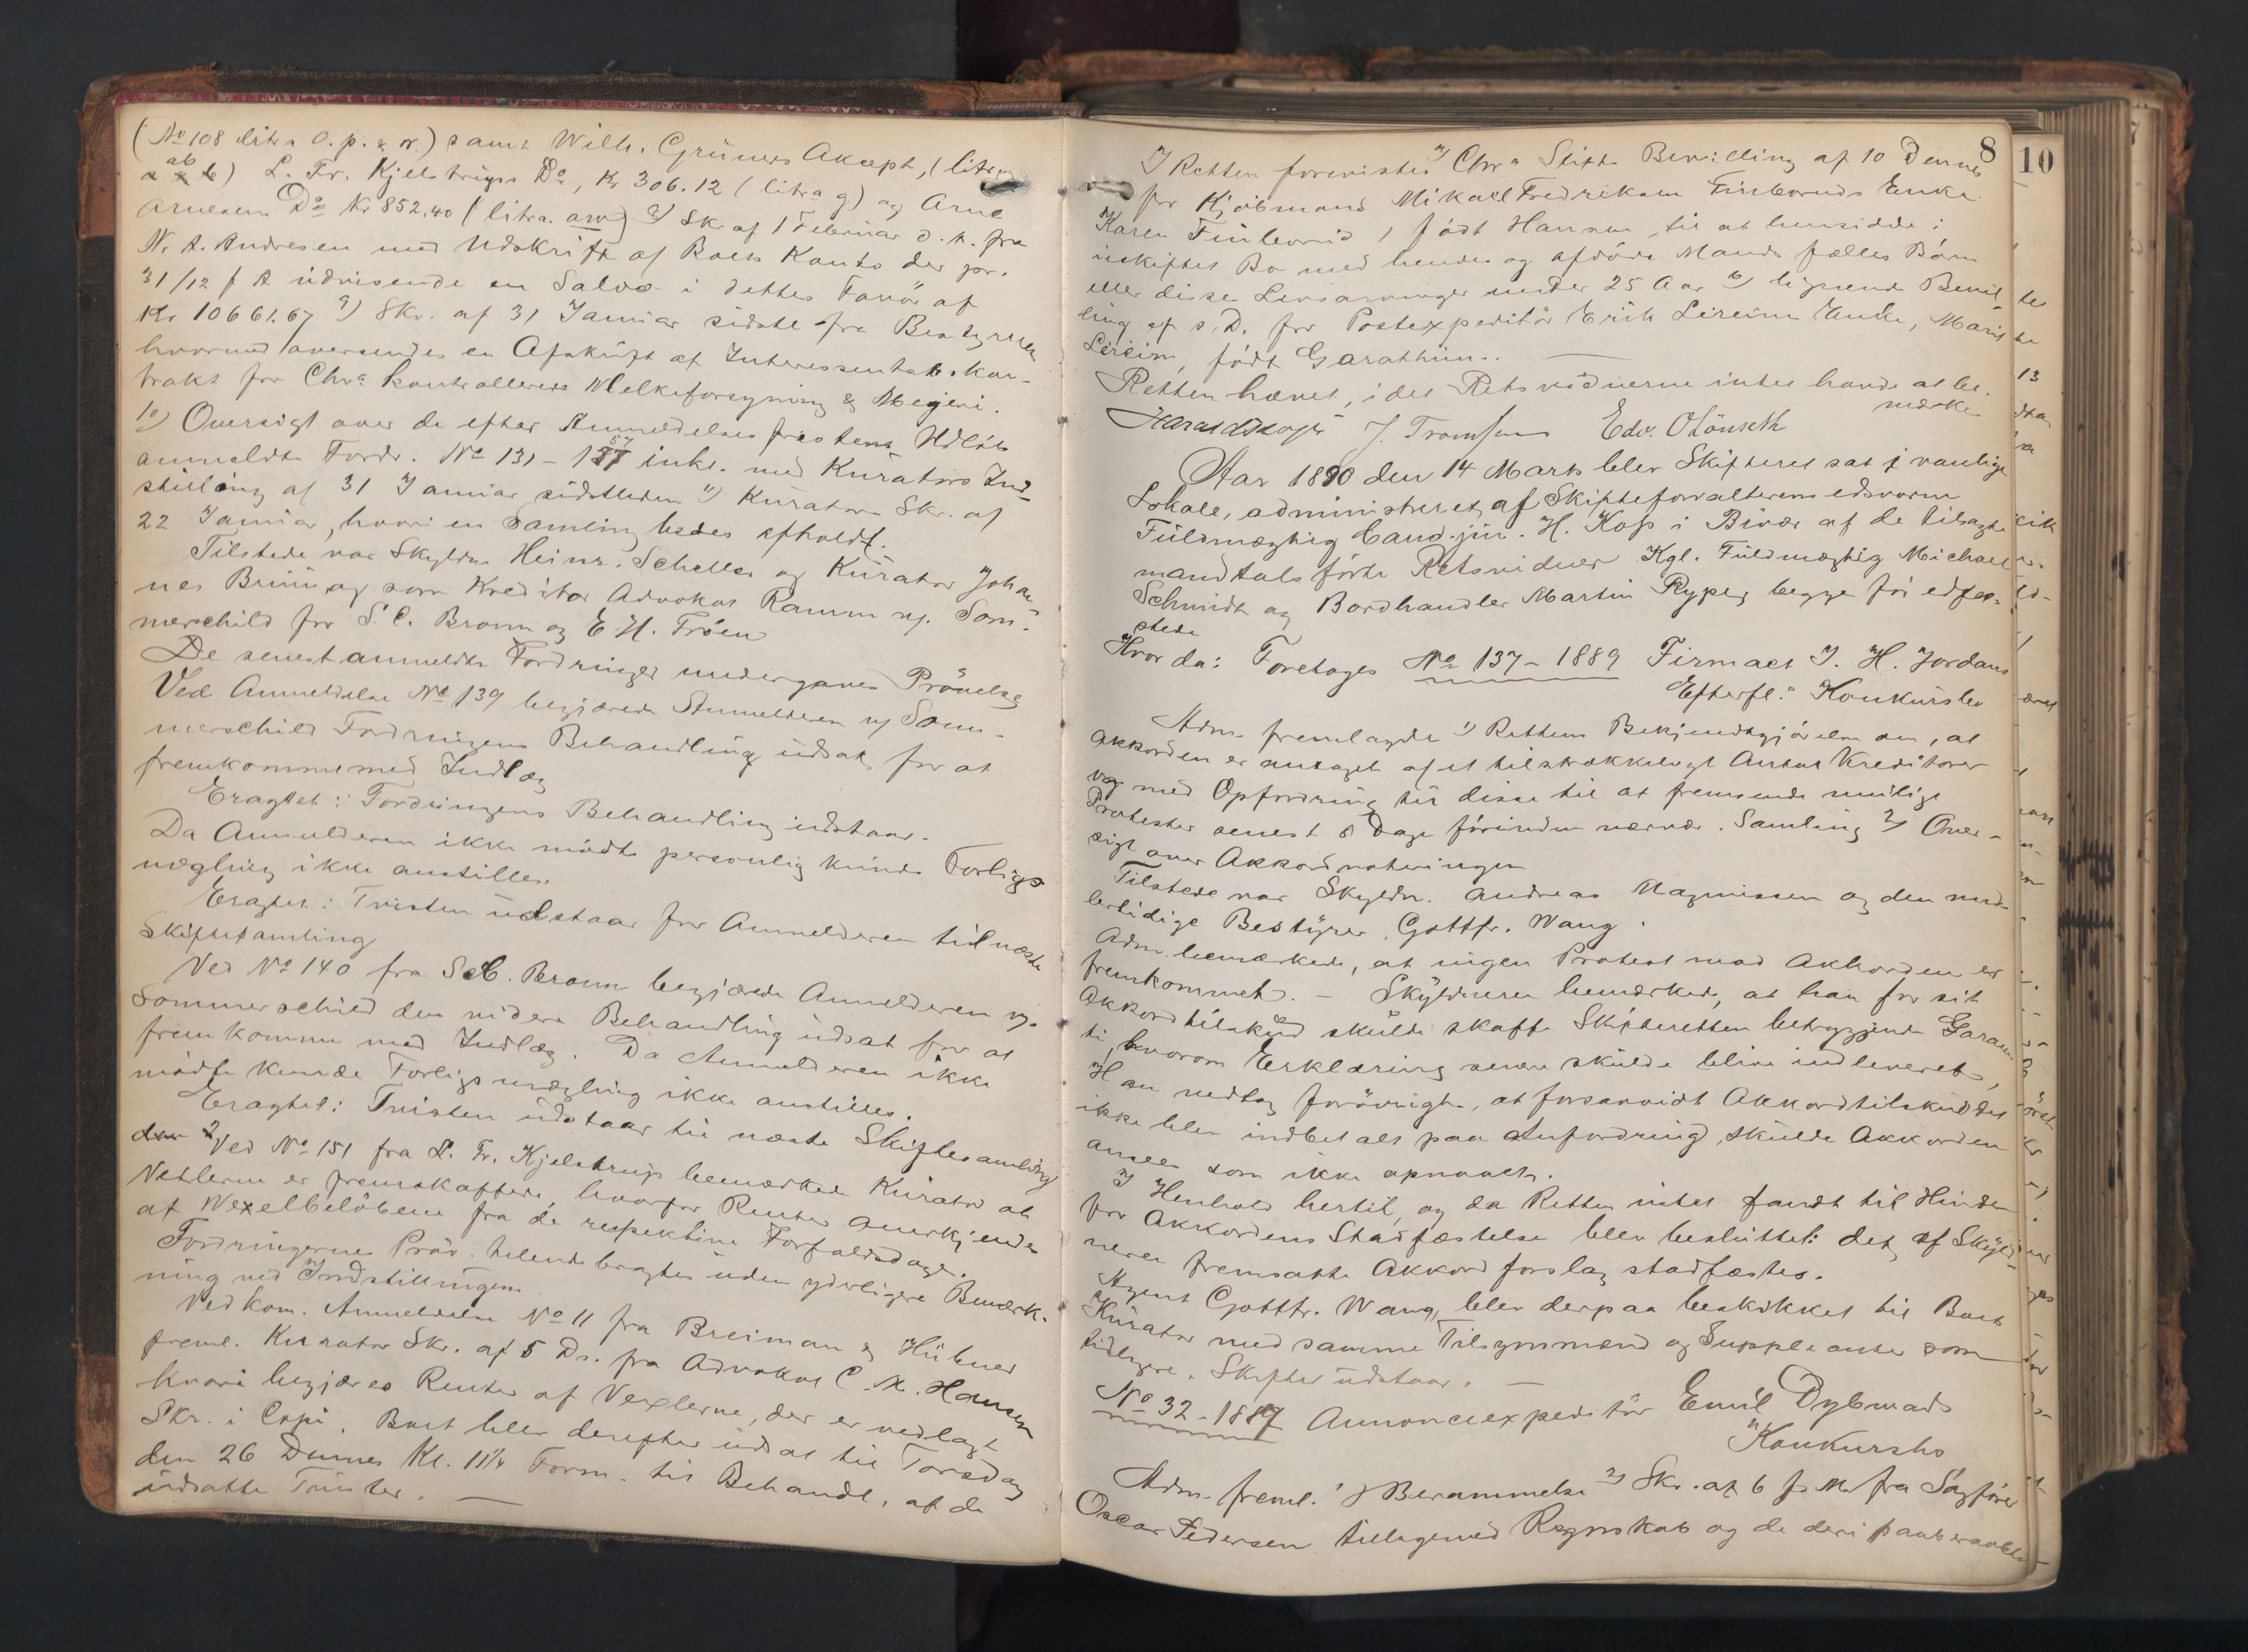 (No 108 litra o. p. & r.) samt Wilh. Grüners Akcept, (litra
ab
b) L. Fr. Kjelstrups Do, Kr 306.12 (litra g) og Arne
Arnesens Do Kr 852,40 (litra. arv) 8) Skr af 1 Februar d. A. fra
N. A. Andresen med Udskrift af Boets Konto der pr.
31/12 f A udvisende en Saldo i dettes Favör af
Kr 10661.67 9) Skr. af 31 Januar sidste fra Bestyreren
hvormed oversendes en Afskrift af Interessentskabskon-
trakt for Chra kontrollerede Melkeforsyning & Meieri.
10) Oversigt over de efter Anmeldelsesfristens Udløb
anmeldte Fordr. No 131 - 157 inkl. med Kurators Ind-
stilling af 31 Januar sidstleden 11) Kurators Skr. af
22 Januar, hvori en Samling bedes afholdt.
Tilstede var Skyldn Heinr. Scheller og Kurator Johan-
nes Bruun og som Kreditor Advokat Ramm og Som-
merschild for S. C. Bronn og E H. Tröen
De senest anmeldte Fordringer undergaves Prövelse
Ved Anmeldelse No 139 begjærede Anmelderen v/ Som-
merschild Fordringens Behandling udsat for at
fremkomme med Indlæg
Eragtet: Fordringens Behandling udstaar.
Da Anmelderen ikke mödte personlig kunde Forligs
mægling ikke anstilles.
Eragtet: Tvisten udstaar for Anmelderen til næste
Skiftesamling
Ved No 140 fra S. C. Bronn begjærede Anmelderen v/
Sommerschild den videre Behandling udsat for at
fremkomme med Indlæg. Da Anmelderen ikke
mödte kunde Forligsmægling ikke anstilles.
Eragtet: Tvisten udstaar til næste Skiftesamling
Ved No 151 fra L. Fr. Kjelstrup bemærkede Kurator at
Vexlerne er fremskaffede, hvorfor Renter anerkjendes
af Wexelbelöbene fra de respektive Forfaldsdage.
Fordringernes Pröv. tilendebragtes uden yderligere Bemærk-
ning ved Indstillingen
Vedkom. Anmeldelse No 11 fra Breiman & Hübner
freml. Kurator Skr. af 5 Ds. fra Advokat C. M. Hansen
hvori begjæres Renter af Vexlerne, der er vedlagt
Skr. i Copi. Boet blev derefter udsat til Torsdag
den 26 Dennes Kl. 11 1/4 Form. til Behandl. af de
udsatte Tvister. —
8
10
I Retten forevistes 1) Chra Stifts Bevilling af 10 Dennes
for Kjöbmand Mikael Fredriksen Enke
Karen, födt Hansen, til at hensidde i
uskiftet Bo med hendes og afdöde Mands fælles Börn
eller disse Livsarvinger under 25 Aar 2) lignende Bevil
ling af s. D. for Postexpeditör Erik Lereims Enke, Marie
Lereim, födt
Retten hævet, idet Retsvidnerne intet havde at be
mærke
J. Tromsen Edv.
Aar 1890 den 14 Marts blev Skifteret sat i vanlige
Lokale, administreret af Skifteforvalterens edsvorne
Fuldmægtig Cand. jur. H. Koss i Bivær af de tilsagte
mandtalsförte Retsvidner Kgl. Fuldmægtig Michael
Schmidt og Bordhandler Martin Ryper begge för edfæ-
stede
Hvor da: Foretages No 137 - 1889 Firmaet J. H. Jordans
Efterfl.s Konkursbo
Adm. fremlagde 1) Rettens Bekjendtgjörelse om, at
Akkorden er antaget af et tilstrækkeligt Antal Kreditorer
og med Opfordring til disse til at fremsende mulige
Protester senest 8 Dage förinden nærvær. Samling 2) Over-
sigt over Akkordvoteringen
Tilstede var Skyldn. Andreas Magnussen og den mid-
lertidige Bestyrer Gottfr. Wang.
Adm. bemærkede, at ingen Protest mod Akkorden er
fremkommet. — Skyldneren bemærkede, at han for sit
Akkordtilskud skulde skaffe Skifteretten betryggende Garan
ti, hvorom Erklæring senere skulde blive indleveret,
Han vedtog forövrigt, at forsaavidt Akkordtilskuddet
ikke blev indbetalt paa Anfordring, skulde Akkorden
ansees som ikke opnaaet.
I Henhold hertil, og da Retten intet fandt til Hinder
for Akkordens Stadfæstelse blev besluttet: det af Skyld-
neren fremsatte Akkordforslag stadfæstes.
Agent Gottfr. Wang blev derpaa beskikket til Boets
Kurator med samme Tilsynsmænd og Suppleanter som
tidligere. Skiftet udstaar. —
No 32 - 1889 Annonceexpeditör Emil Dybwads
Konkursbo
Adm. freml. 1) Berammelse 2) Skr. af 6 ds M. fra Sagförer
Oscar Pedersen tilligemed Regnskab og de deri paaberaabte